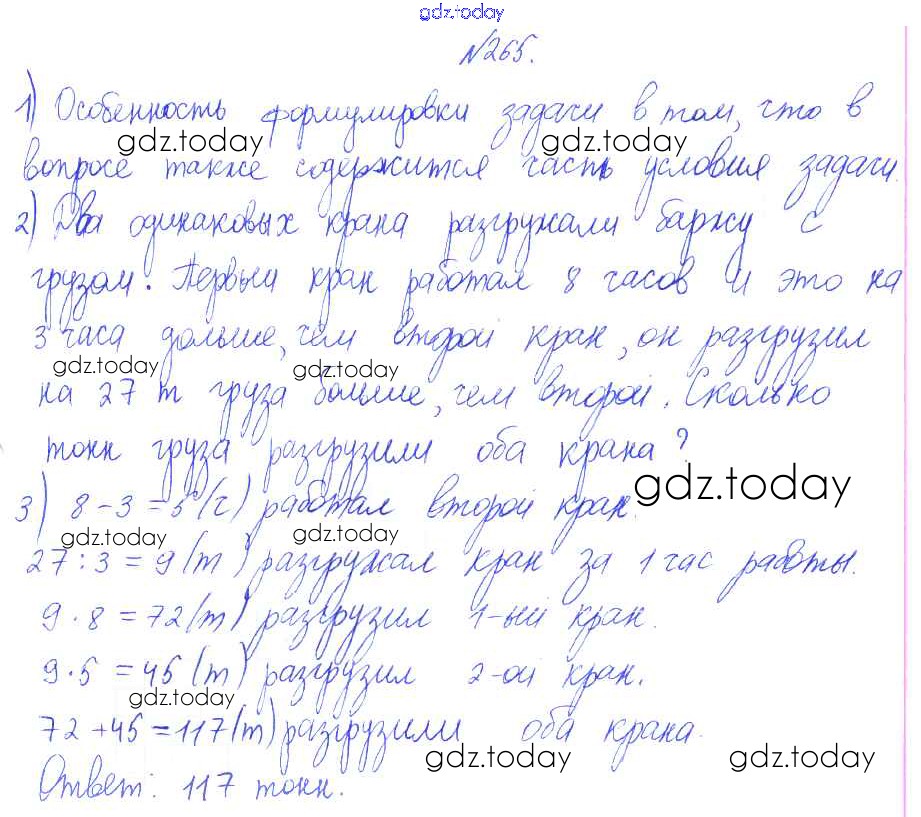 gdz.today
№265.
1) Особенность формулировки задачи в том, что в
gdz.today gdz.today
вопросе также содержится часть условия задачи.
2) Два одинаковых крана разгружали баржу с
грузом. Первый кран работал 8 часов и это на
3 часа дольше, чем второй кран, он разгрузил
gdz.today gdz.today
на 27 т груза больше, чем второй. Сколько
тонн груза разгрузили оба крана?
gdz.today
3) 8-3=5(ч) работал второй кран.
gdz.today gdz.today
27:3=9(т) разгружал кран за 1 час работы.
9·8=72(т) разгрузил 1-ый кран.
9·5=45(т) разгрузил 2-ой кран.
gdz.today
72+45=117(т) разгрузили оба крана.
gdz.today gdz.today
Ответ: 117 тонн.